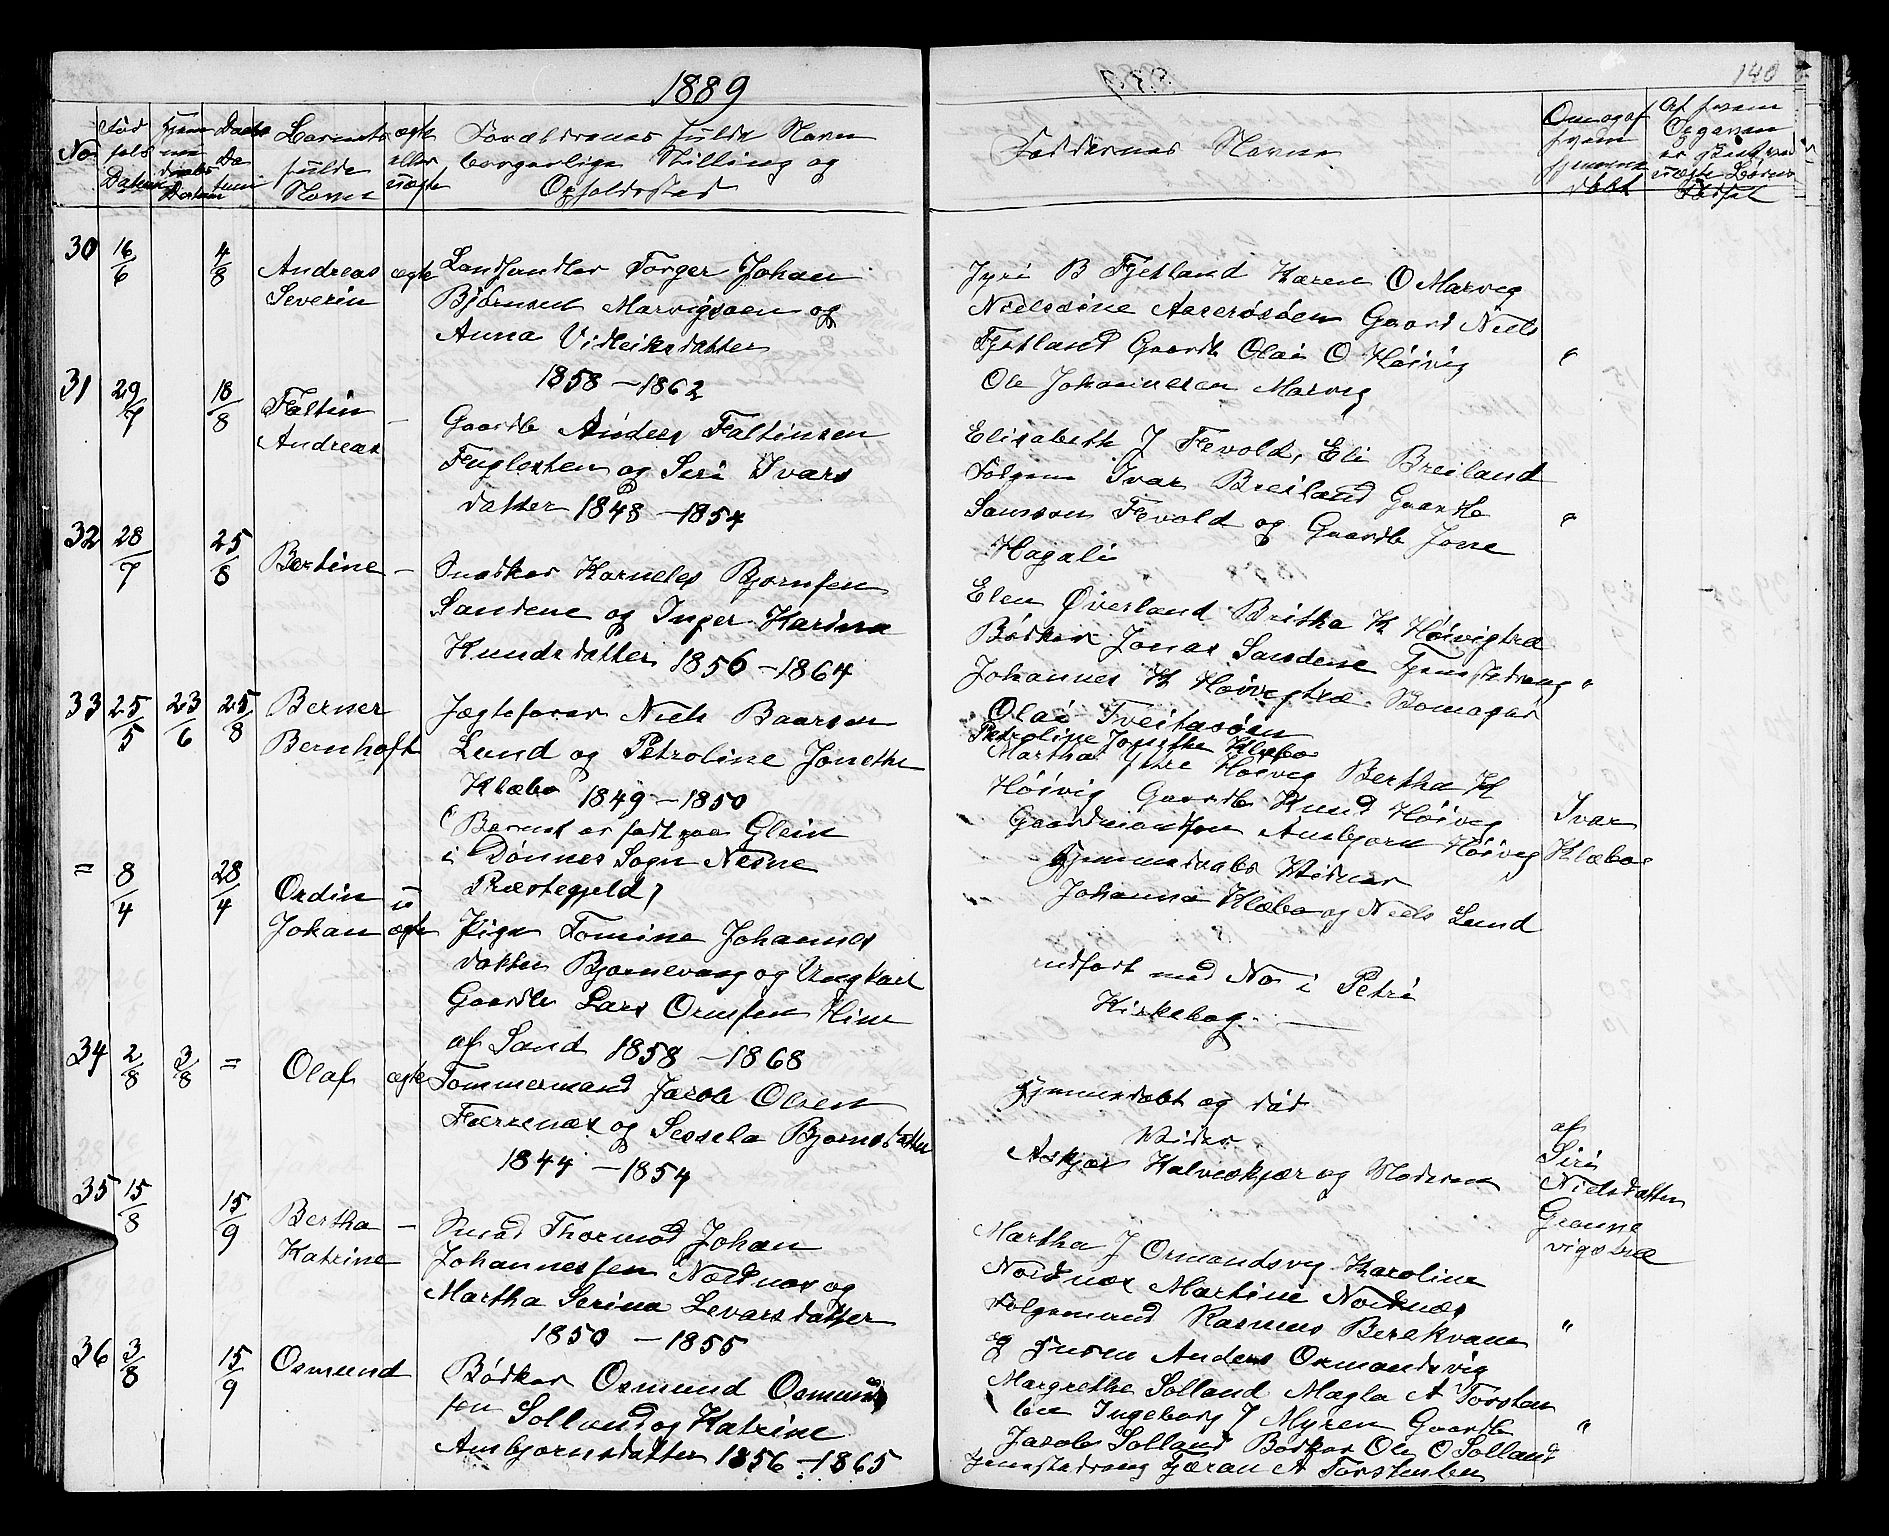 1889
140
No
Fød
sels
Datum
Hjem
me
daabs
Datum
Daabs
Da
tum
Barnets
fulde
Navn
ægte
eller
uægte
Forældrenes fulde Navn
borgerlige Stilling og
Opholdssted
Faddernes Navne
Om og af
hvem
hjemme
døbt
Af hvem
Opgaven
30 16/6 4/8
Andreas ægte Landhandler Torger Johan
Severin Bjørnsen Marvigsoen og
Anna Vidleiksdatter
1858 – 1862
Jyri B Fjetland Karen O Marvig
Nielsine Aaserøsøen Gaard Niels
Fjetland Gaardb Olai O Høivig "
Ole Johannesen Marvig
31 29/7 18/8
Faltin – Gaardb Anders Faltinsen
Andreas Fuglesten og Siri Ivars
datter 1848 – 1854
Elisabeth J Fevold, Eli Breiland
Folgem Ivar Breiland Gaardb
Samson Fevold og Gaardb Jone "
Hagali
32 28/7 25/8
Bertine – Snedker Korneles Bjørnsen
Sandene og Inger Karina
Knudsdatter 1856 – 1864
Elen Øverland Britha K Høivigtræ
Bødker Jonas Sandene Tjenestedreng "
Johannes K Høivigtræ Bomager
Olai Tveitasøen
33 25/5 23/6 25/8
Berner Jægtefører Niels Baarsen
Bernhoft Lund og Petroline Jonethe
Klæbo 1849 – 1850
(Barnet er født paa Glein
i Dønnes Sogn Nesne
Præstegjeld)
Petroline Jonethe Klæbo
Martha Ytre Høivig Bertha K
Høivig Gaardb Knud Høivig
Gaardmandsøn Ambjørn Høivig
Ivar
Klæboe
Hjemmedaabs Vidner
Johanna Klæbo og Niels Lund
= 8/4 28/4
Ordin u
Johan ægte Pige Tomine Johannes
datter Bjørnevaag og Ungkarl
Gaardb Lars Ormsen Hiim
af Sand 1858 – 1868
indført med No i Petri
Kirkebog. —
34 2/8 3/8 =
Olaf ægte Tømmermand Jacob Olsen
Foerrenæs og Sessela Bjørnsdatter
1844 – 1854
Hjemmedøbt og død
Vidner
Askjær Kalveskjær og Moderen
af
Siri
Nielsdatter
Grønne
vigstræ
35 15/8 15/9
Bertha – Smed Thormod Johan
Katrine Johannessen Nordnæs og
Martha Serina Levarsdatter
1850 – 1855
Martha J Ormandsvg Karoline
Nordnæs Martine Nordnæs
Folgemand Rasmus Berekvam "
og Anders Ormandsvig
36 3/8 15/9
Osmund Bødker Osmund Osmund
sen Solland og Katrine
Ambjørnsdatter 1856 – 1865
Margrethe Solland Magla A Torsten
bu Ingeborg J Myren Gaardb
Jacob Solland Bødker Ole O Solland "
Tjenestedreng Tjæran A Torstenbu